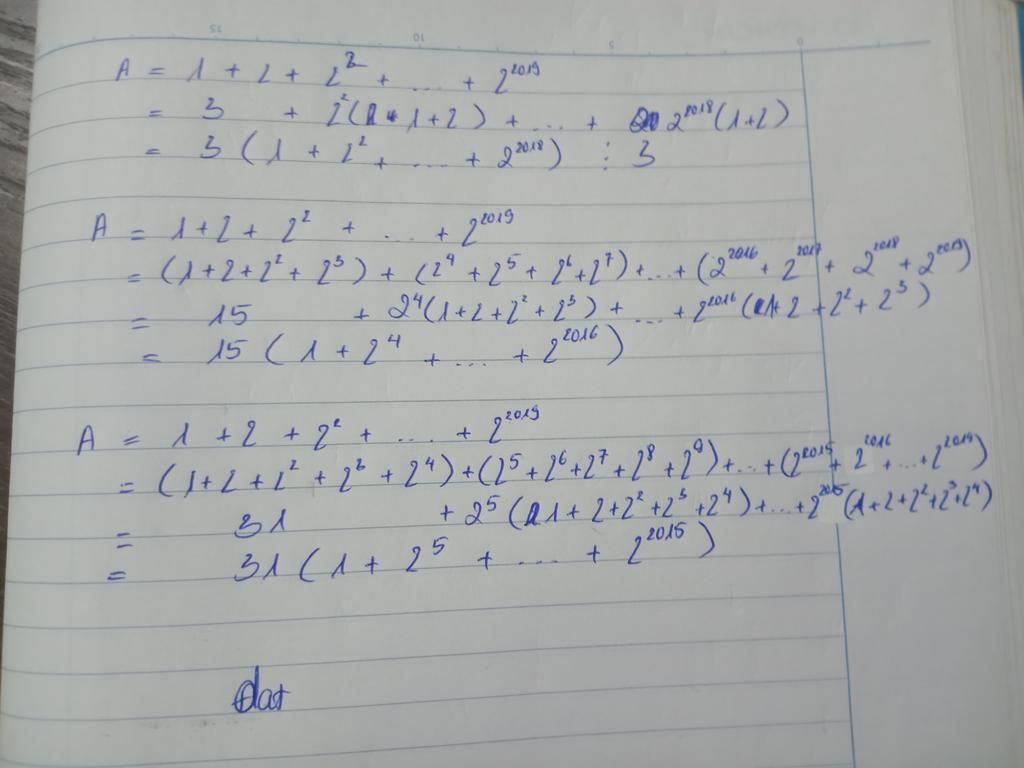 A = 1 + 2 + 2² + ... + 2²⁰¹⁹
= 3 + 2²(1+2) + ... + 2²⁰¹⁸(1+2)
= 3 (1 + 2² + ... + 2²⁰¹⁸) ⋮ 3
A = 1 + 2 + 2² + ... + 2²⁰¹⁹
= (1+2+2²+2³) + (2⁴+2⁵+2⁶+2⁷) + ... + (2²⁰¹⁶ + 2²⁰¹⁷ + 2²⁰¹⁸ + 2²⁰¹⁹)
= 15 + 2⁴(1+2+2²+2³) + ... + 2²⁰¹⁶(1+2+2²+2³)
= 15 (1 + 2⁴ + ... + 2²⁰¹⁶)
A = 1 + 2 + 2² + ... + 2²⁰¹⁹
= (1+2+2²+2³+2⁴)+(2⁵+2⁶+2⁷+2⁸+2⁹)+...+(2²⁰¹⁵+2²⁰¹⁶+...+2²⁰¹⁹)
= 31 + 2⁵(1+2+2²+2³+2⁴)+...+2²⁰¹⁵(1+2+2²+2³+2⁴)
= 31 (1 + 2⁵ + ... + 2²⁰¹⁵)